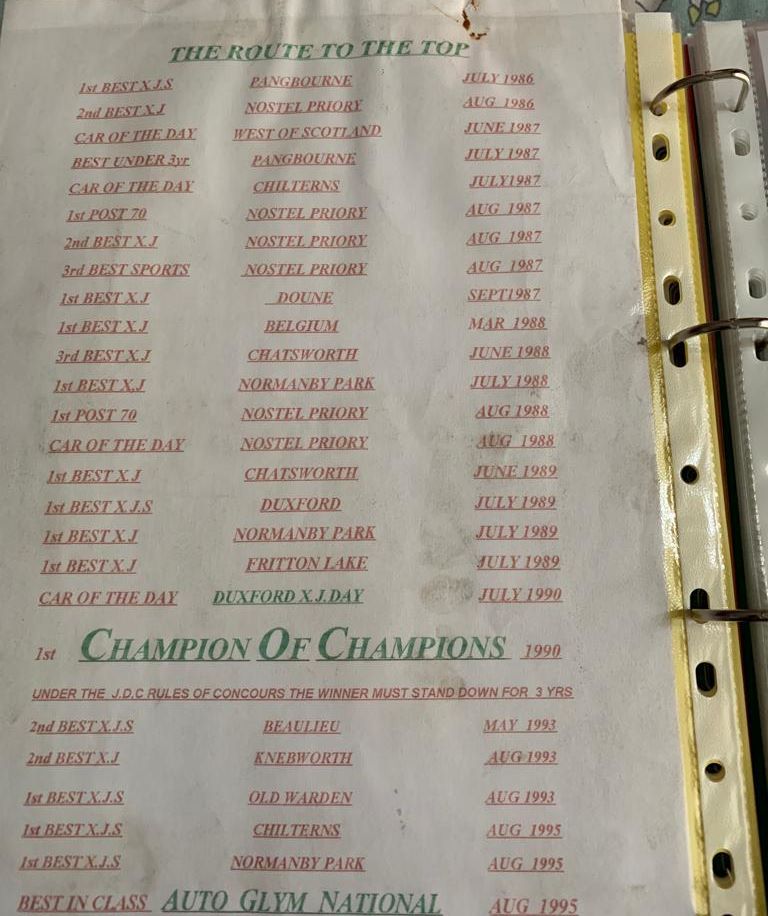 THE ROUTE TO THE TOP
1st BEST X.J.S PANGBOURNE JULY 1986
2nd BEST X.J NOSTEL PRIORY AUG 1986
CAR OF THE DAY WEST OF SCOTLAND JUNE 1987
BEST UNDER 3yr PANGBOURNE JULY 1987
CAR OF THE DAY CHILTERNS JULY1987
1st POST 70 NOSTEL PRIORY AUG 1987
2nd BEST X.J NOSTEL PRIORY AUG 1987
3rd BEST SPORTS NOSTEL PRIORY AUG 1987
1st BEST X.J DOUNE SEPT1987
1st BEST X.J BELGIUM MAR 1988
3rd BEST X.J CHATSWORTH JUNE 1988
1st BEST X.J NORMANBY PARK JULY 1988
1st POST 70 NOSTEL PRIORY AUG 1988
CAR OF THE DAY NOSTEL PRIORY AUG 1988
1st BEST X.J CHATSWORTH JUNE 1989
1st BEST X.J.S DUXFORD JULY 1989
1st BEST X.J NORMANBY PARK JULY 1989
1st BEST X.J FRITTON LAKE JULY 1989
CAR OF THE DAY DUXFORD X.J.DAY JULY 1990
1st CHAMPION OF CHAMPIONS 1990
UNDER THE J.D.C RULES OF CONCOURS THE WINNER MUST STAND DOWN FOR 3 YRS
2nd BEST X.J.S BEAULIEU MAY 1993
2nd BEST X.J KNEBWORTH AUG 1993
1st BEST X.J.S OLD WARDEN AUG 1993
1st BEST X.J.S CHILTERNS AUG 1995
1st BEST X.J.S NORMANBY PARK AUG 1995
BEST IN CLASS AUTO GLYM NATIONAL AUG 1995